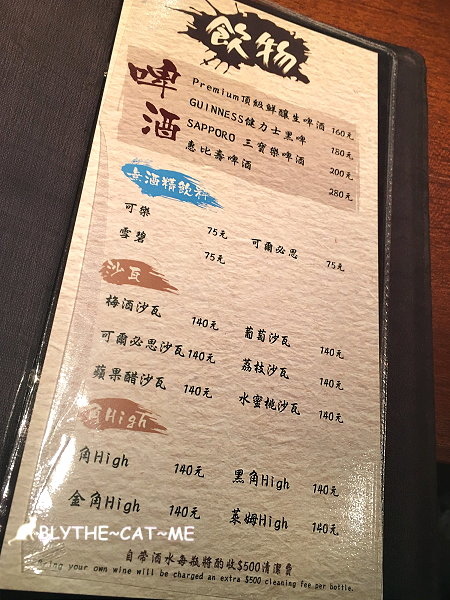 飲物
啤酒
Premium頂級鮮釀生啤酒 160元
GUINNESS健力士黑啤 180元
SAPPORO 三寶樂啤酒 200元
惠比壽啤酒 280元
無酒精飲料
可樂 75元 可爾必思 75元
雪碧 75元
沙瓦
梅酒沙瓦 140元 葡萄沙瓦 140元
可爾必思沙瓦 140元 荔枝沙瓦 140元
蘋果醋沙瓦 140元 水蜜桃沙瓦 140元
角High
角High 140元 黑角High 140元
金角High 140元 萊姆High 140元
自帶酒水每瓶將酌收$500清潔費
Bring your own wine will be charged an extra $500 cleaning fee per bottle.
BLYTHE~CAT~ME